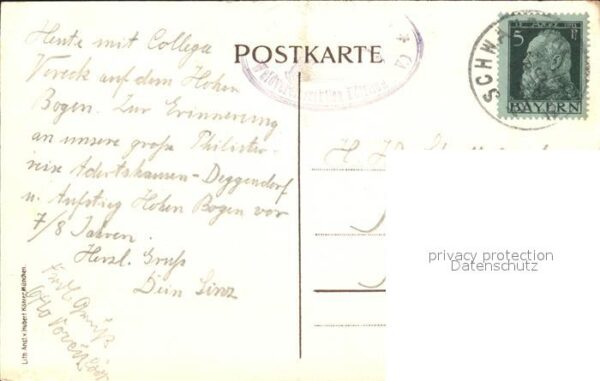 Heute mit Collega
Vereck auf dem Hohen
Bogen. Zur Erinnerung
an unsere große Philister-
reise Adertshausen-Deggendorf
u. Aufstieg Hohen Bogen vor
7/8 Jahren.
Herzl. Gruß
Dein Linz
Gruß
Otto
POSTKARTE
SCHW
5 Pf
BAYERN
privacy protection
Datenschutz
Lith. Anst. v. Hubert Köhler, München.